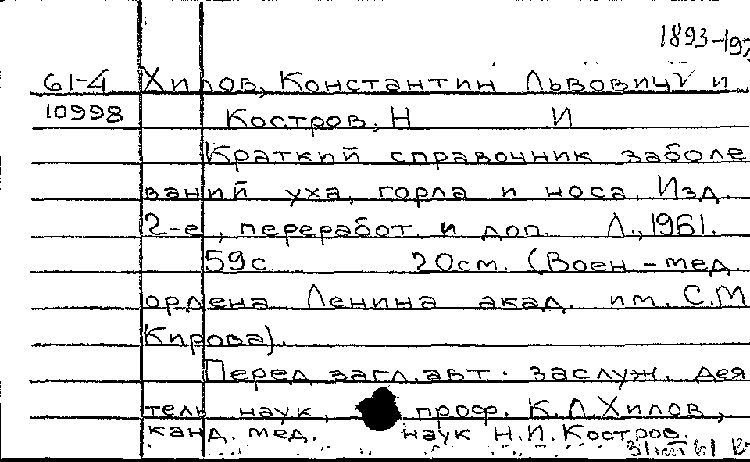 1893-197
61-4 Хилов, Константин Львович и
10998 Костров, Н И
Краткий справочник заболе
ваний уха, горла и носа. Изд.
2-е, переработ. и доп. Л., 1961.
59с 20см. (Воен-мед.
ордена Ленина акад. им. С.М
Кирова).
Перед загл. авт.: заслуж. дея
тель наук, проф. К.Л. Хилов,
канд. мед. наук Н.И. Костров.